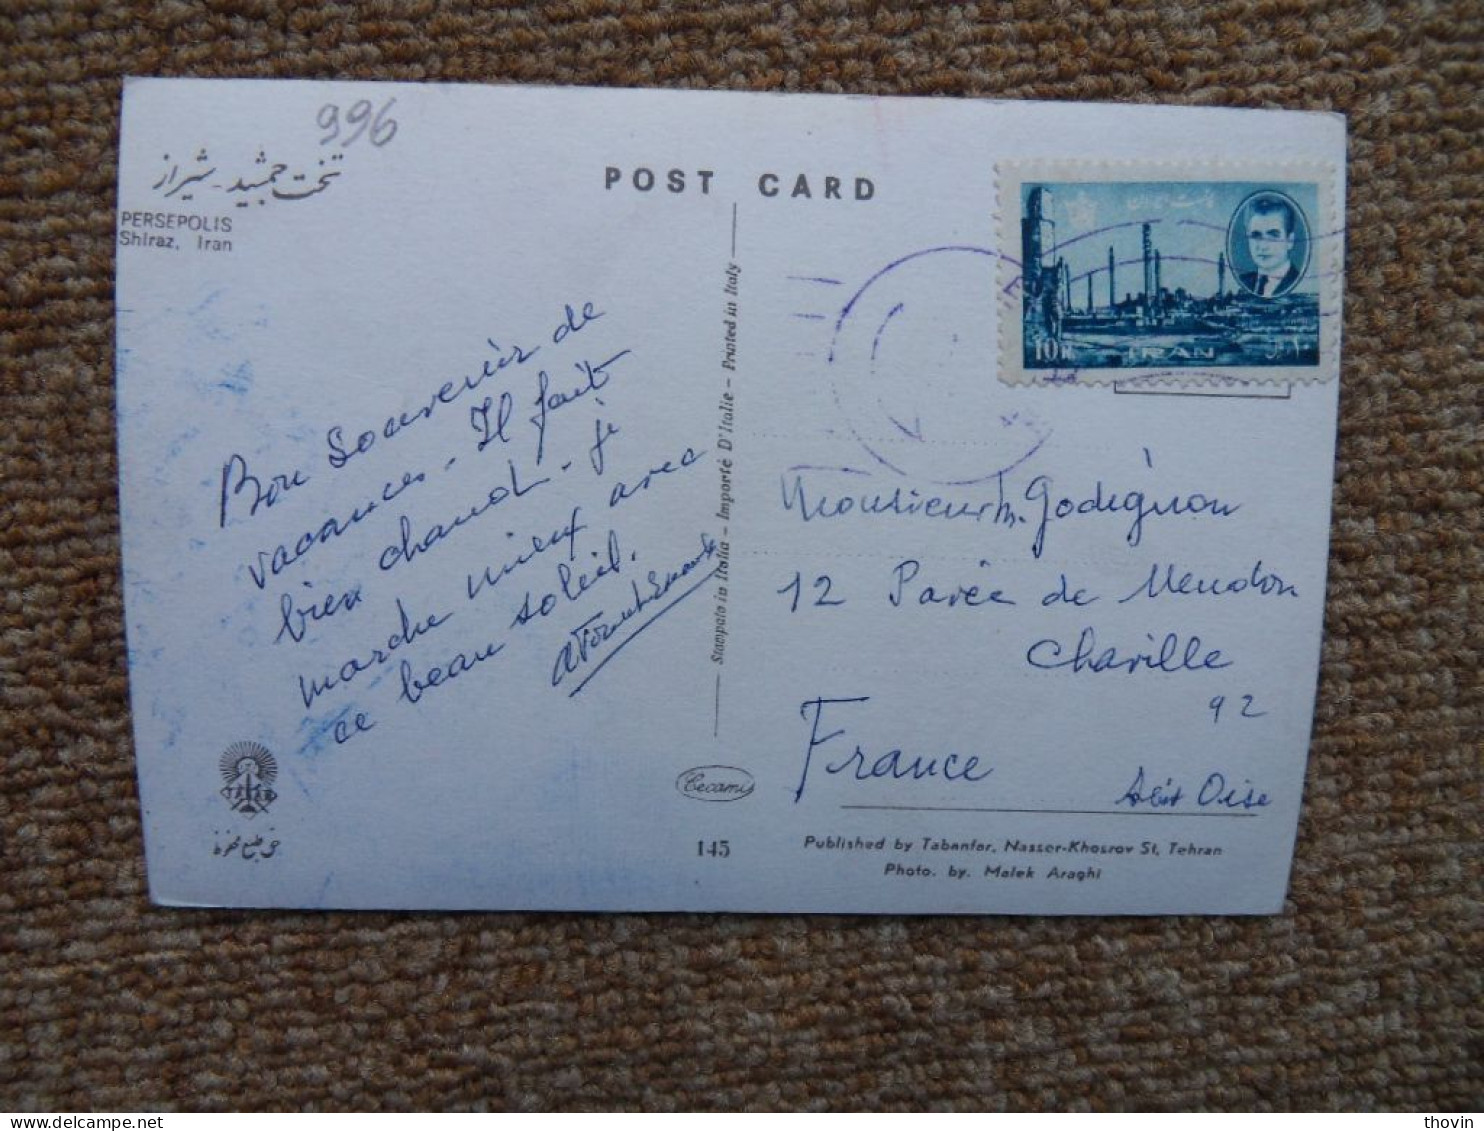 996
تخت جمشید - شیراز
PERSEPOLIS
Shiraz, Iran
POST CARD
10 R.
IRAN
Bon Souvenir de
vacances - Il fait
bien chaud - je
marche mieux avec
ce beau soleil.
Stampato in Italia - Importé D'Italie - Printed in Italy
Monsieur Godignon
12 Pavée de Meudon
Chaville
92
France
Seine et Oise
Cecami
145
Published by Tabanfar, Nasser-Khosrov St, Tehran
Photo. by. Malek Araghi
حق طبع محفوظ
thovin